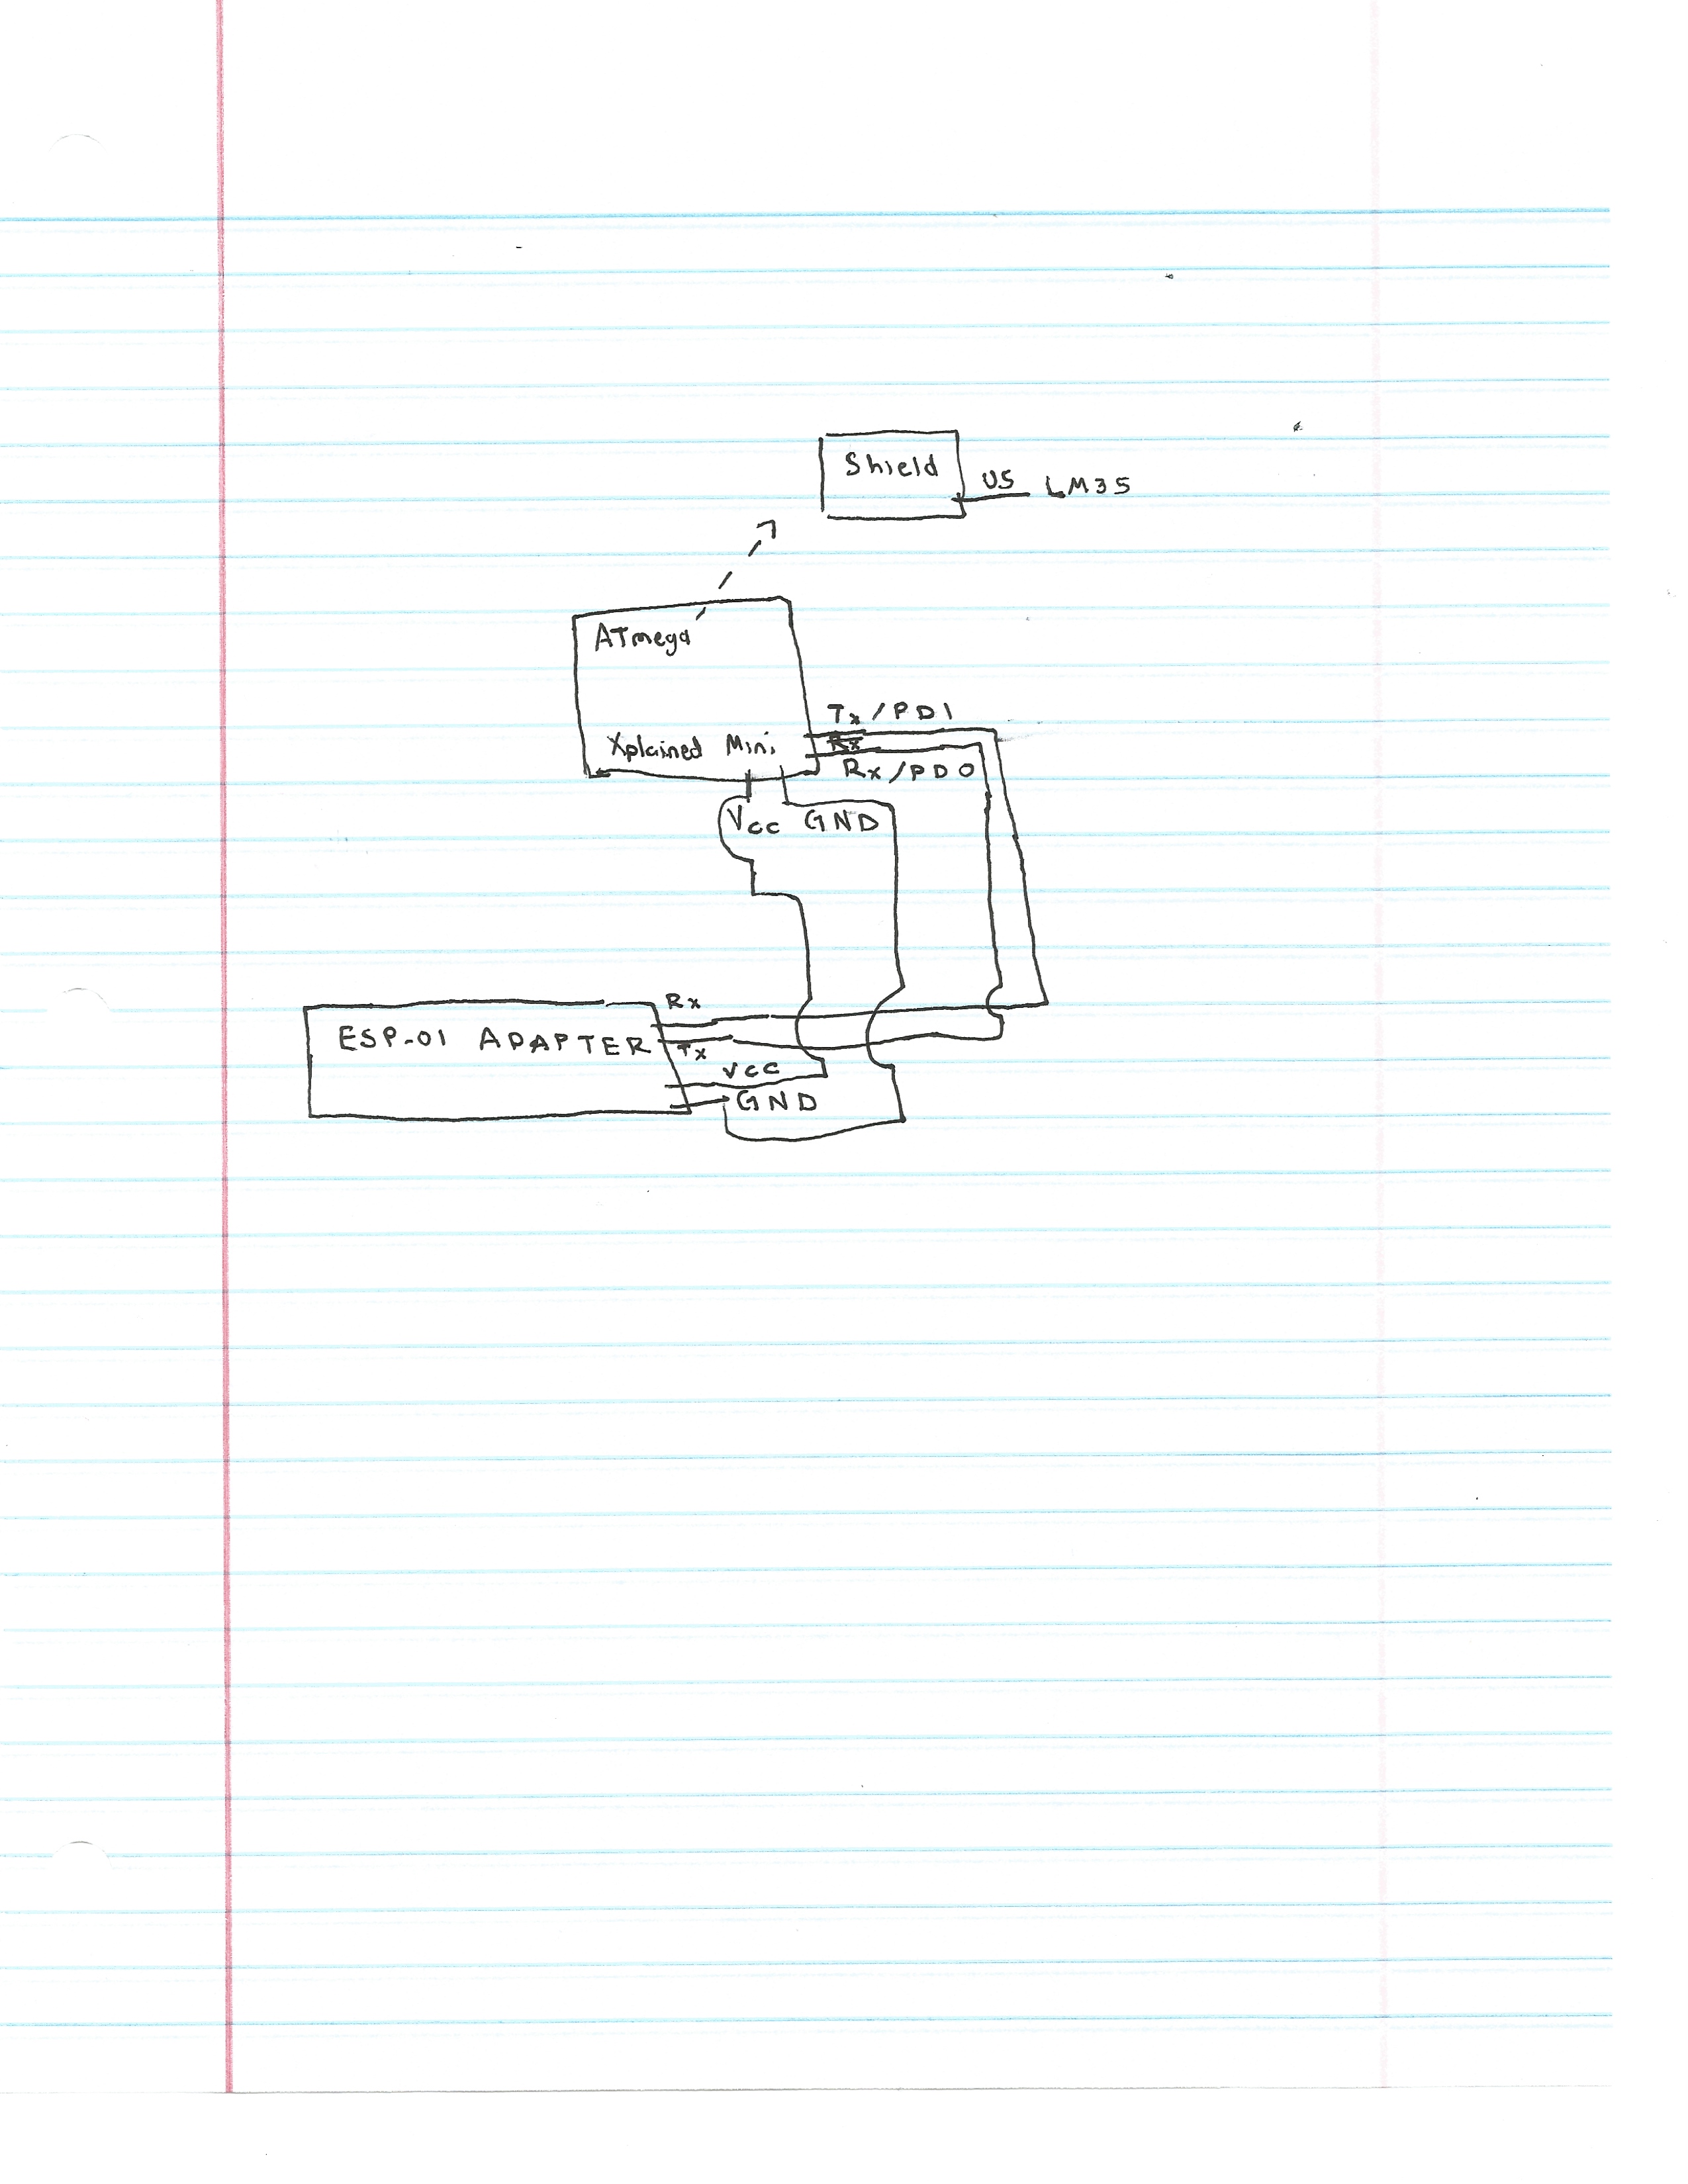 Shield
U5 LM35
ATmega
Tx/PD1
Xplained Mini
Rx
Rx/PD0
Vcc GND
Rx
ESP-01 ADAPTER
Tx
Vcc
GND